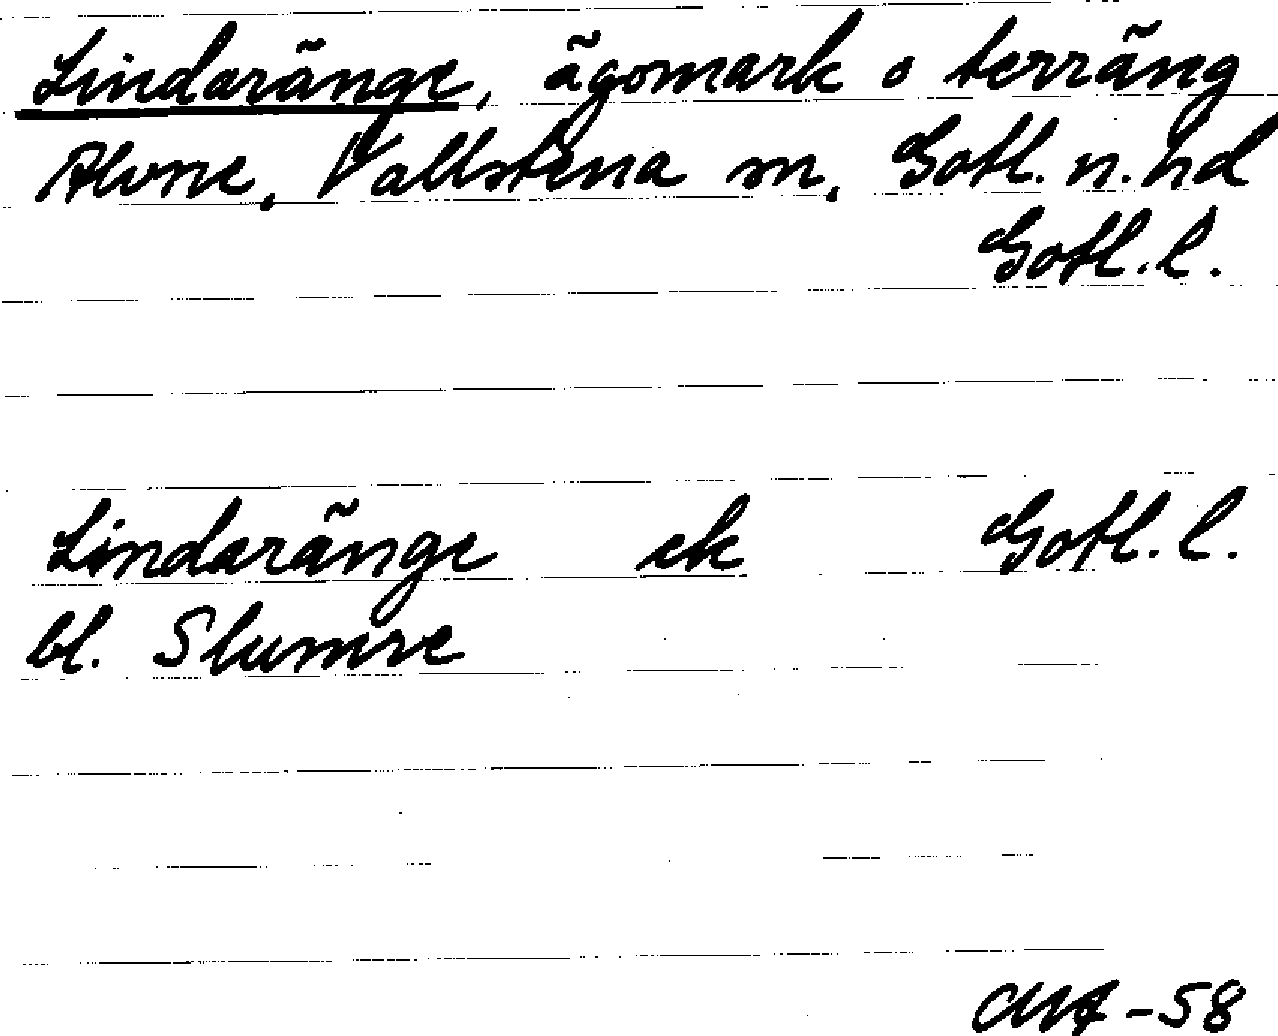 Lindaränge, ägomark o terräng
Alvne, Vallstena sn, Gotl. n. hd
Gotl. l.
Lindaränge ek Gotl. l.
bl. Slumre
-58